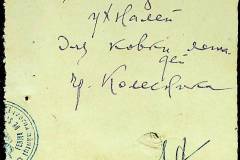 ухналей
для ковки лоша
дей
гр. Колесника